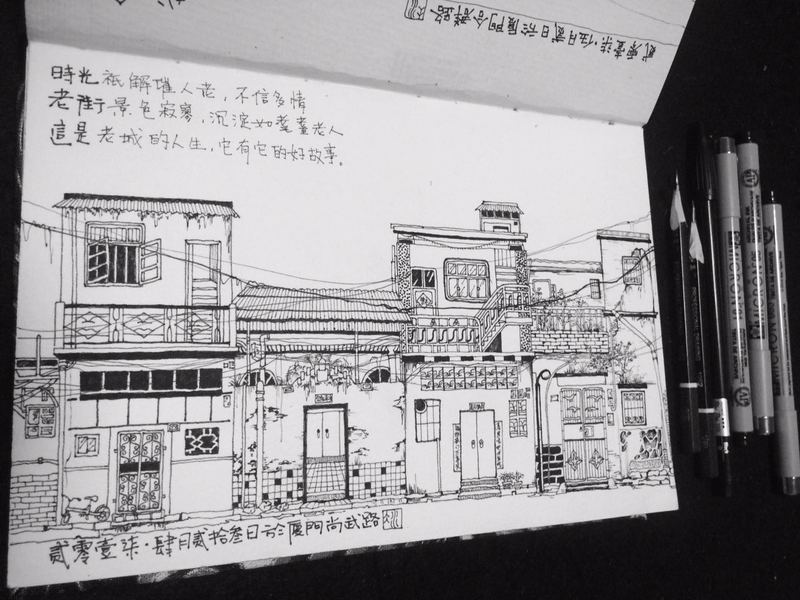 貳零壹柒·伍月貳日於厦門合群路
時光祇解催人老，不信多情
老街景色寂寥，沉淀如耄耋老人
這是老城的人生，它有它的好故事。
貳零壹柒·肆月貳拾叁日於厦門尚武路
MICRON
MICRON